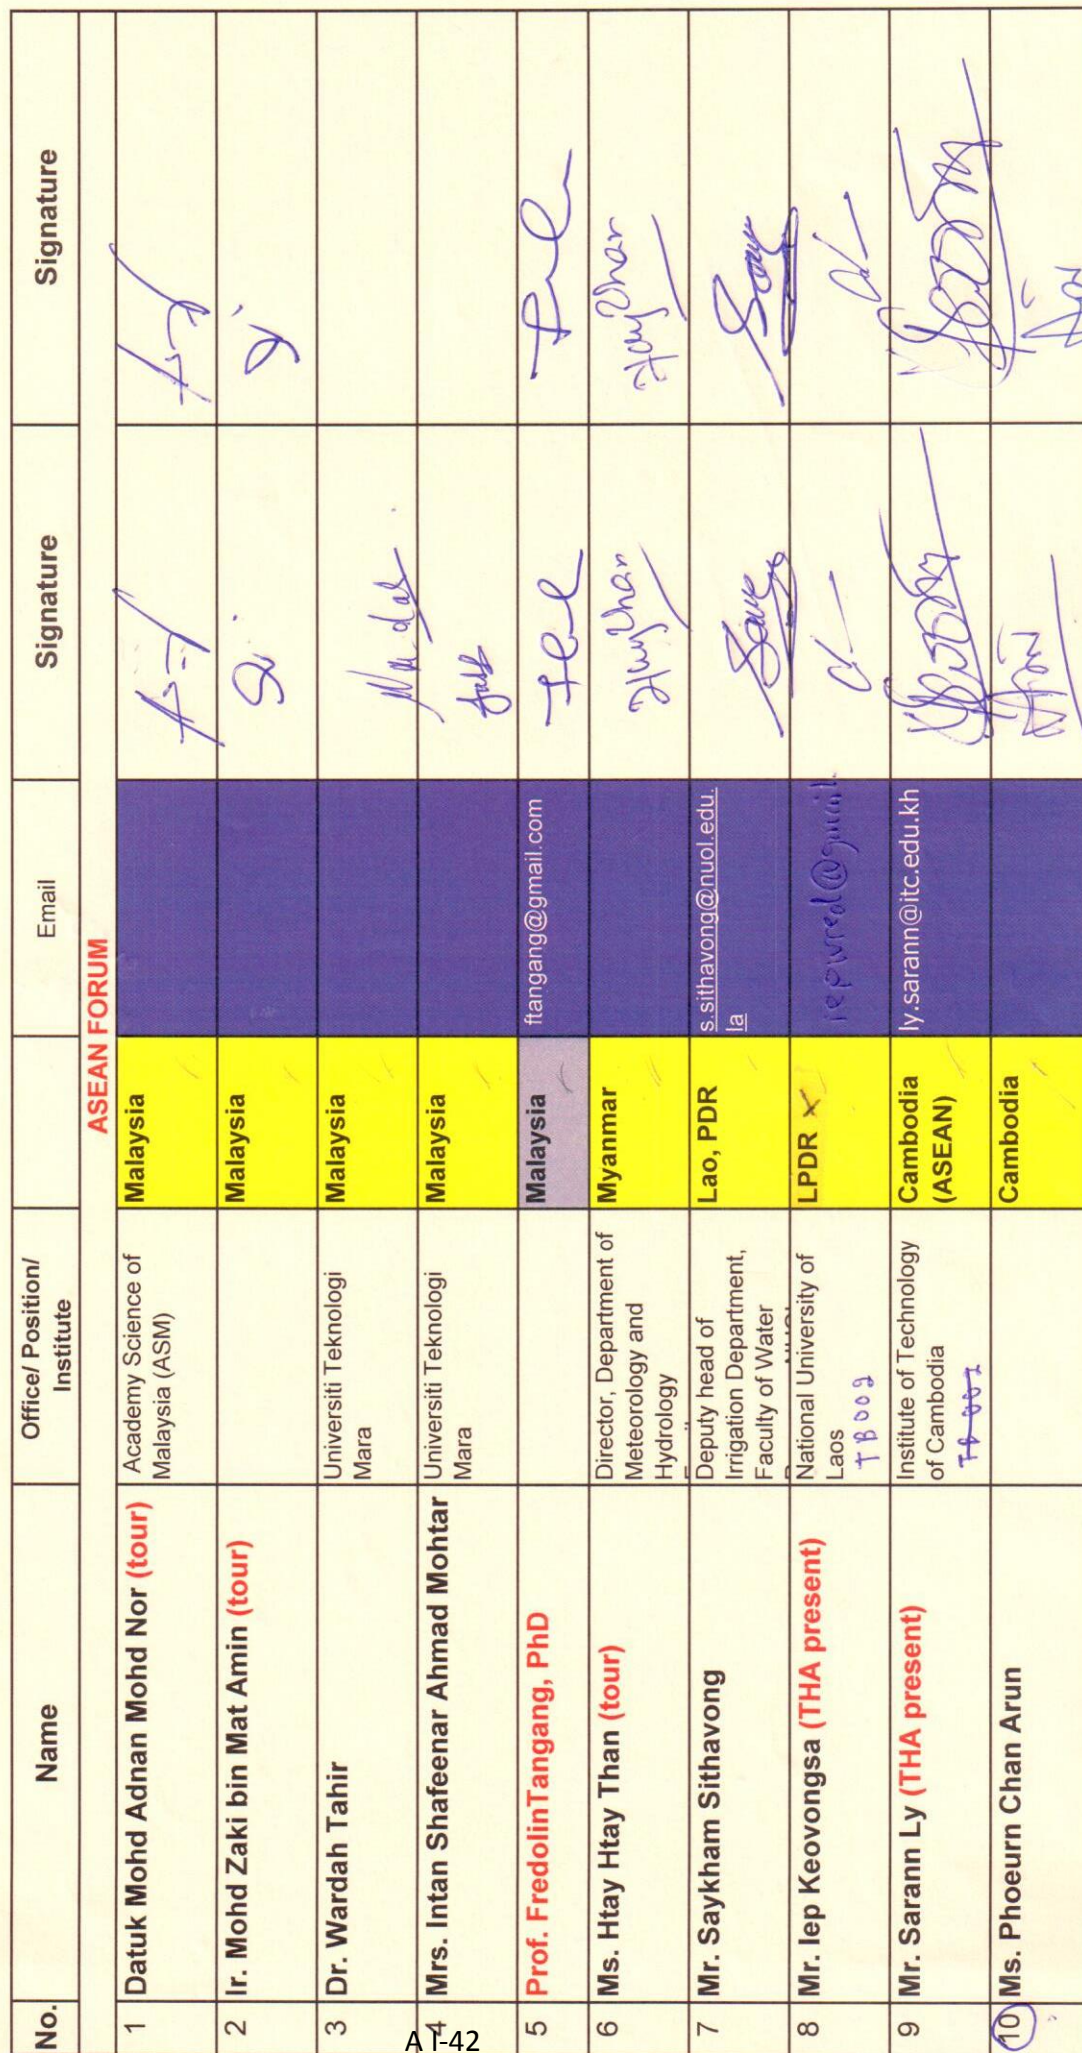 No.
Name
Office/ Position/
Institute
Email
Signature
Signature
ASEAN FORUM
1
Datuk Mohd Adnan Mohd Nor (tour)
Academy Science of
Malaysia (ASM)
Malaysia
2
Ir. Mohd Zaki bin Mat Amin (tour)
Malaysia
3
Dr. Wardah Tahir
Universiti Teknologi
Mara
Malaysia
4
Mrs. Intan Shafeenar Ahmad Mohtar
Universiti Teknologi
Mara
Malaysia
5
Prof. FredolinTangang, PhD
Malaysia
ftangang@gmail.com
6
Ms. Htay Htay Than (tour)
Director, Department of
Meteorology and
Hydrology
Myanmar
7
Mr. Saykham Sithavong
Deputy head of
Irrigation Department,
Faculty of Water
Lao, PDR
s.sithavong@nuol.edu.
la
8
Mr. Iep Keovongsa (THA present)
National University of
Laos
TB002
LPDR x
9
Mr. Sarann Ly (THA present)
Institute of Technology
of Cambodia
TB 002
Cambodia
(ASEAN)
ly.sarann@itc.edu.kh
10
Ms. Phoeurn Chan Arun
Cambodia
A I-42